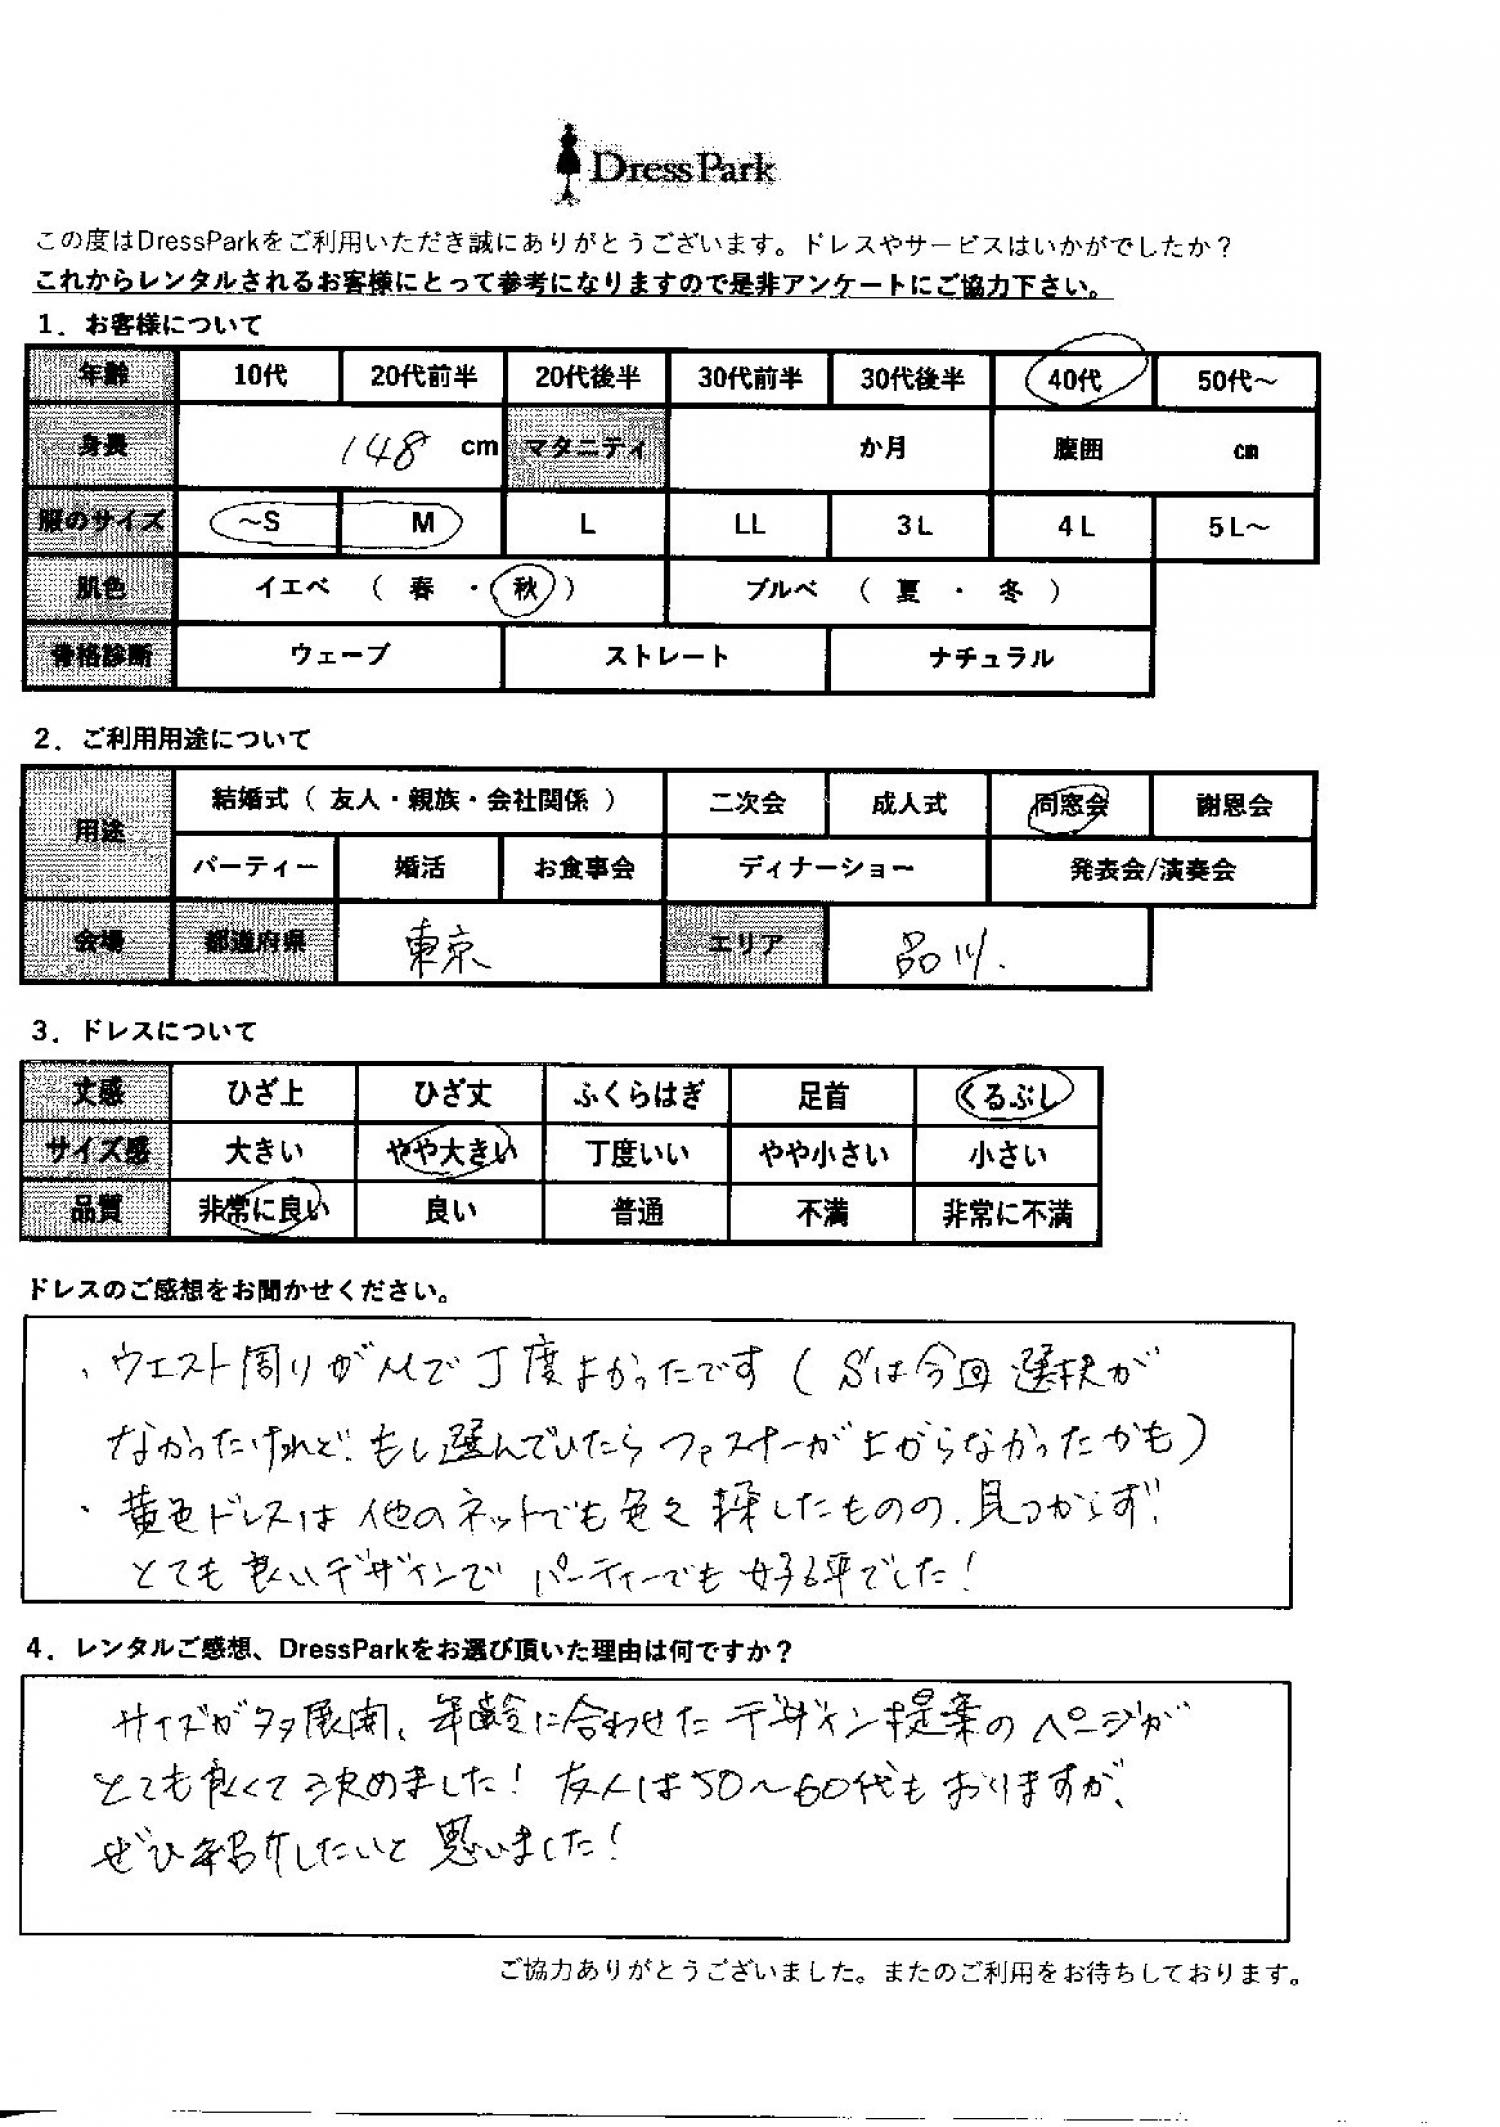 DressPark
この度はDressParkをご利用いただき誠にありがとうございます。ドレスやサービスはいかがでしたか？
これからレンタルされるお客様にとって参考になりますので是非アンケートにご協力下さい。
1．お客様について
年齢 10代 20代前半 20代後半 30代前半 30代後半 40代 50代～
身長 148 cm マタニティ か月 腹囲 cm
服のサイズ ～S M L LL 3L 4L 5L～
肌色 イエベ （ 春 ・ 秋 ） ブルベ （ 夏 ・ 冬 ）
骨格診断 ウェーブ ストレート ナチュラル
2．ご利用用途について
用途 結婚式（ 友人・親族・会社関係 ） 二次会 成人式 同窓会 謝恩会
パーティー 婚活 お食事会 ディナーショー 発表会/演奏会
会場 都道府県 東京 エリア 品川.
3．ドレスについて
丈感 ひざ上 ひざ丈 ふくらはぎ 足首 くるぶし
サイズ感 大きい やや大きい 丁度いい やや小さい 小さい
品質 非常に良い 良い 普通 不満 非常に不満
ドレスのご感想をお聞かせください。
、ウエスト周りがMで丁度よかったです（Sは今回選択が
なかったけれど、もし選んでいたらファスナーが上がらなかったかも）
・黄色ドレスは他のネットでも色々探したものの、見つからず、
とても良いデザインでパーティーでも好評でした！
4．レンタルご感想、DressParkをお選び頂いた理由は何ですか？
サイズが多展開、年齢に合わせたデザイン提案のページが
とても良くて決めました！友人は50～60代もおりますが、
ぜひ紹介したいと思いました！
ご協力ありがとうございました。またのご利用をお待ちしております。